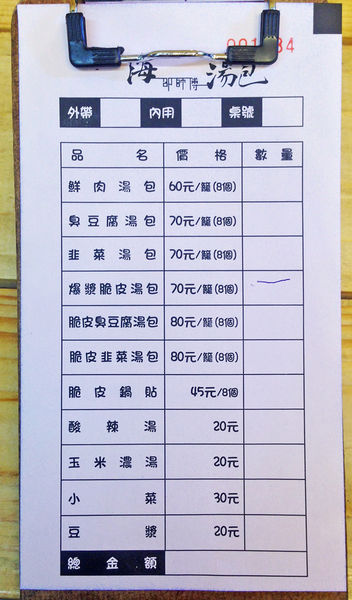 海 湯包
外帶 內用 桌號
品名 價格 數量
鮮肉湯包 60元/籠(8個)
臭豆腐湯包 70元/籠(8個)
韭菜湯包 70元/籠(8個)
爆漿脆皮湯包 70元/籠(8個)
脆皮臭豆腐湯包 80元/籠(8個)
脆皮韭菜湯包 80元/籠(8個)
脆皮鍋貼 45元/8個
酸辣湯 20元
玉米濃湯 20元
小菜 30元
豆漿 20元
總金額